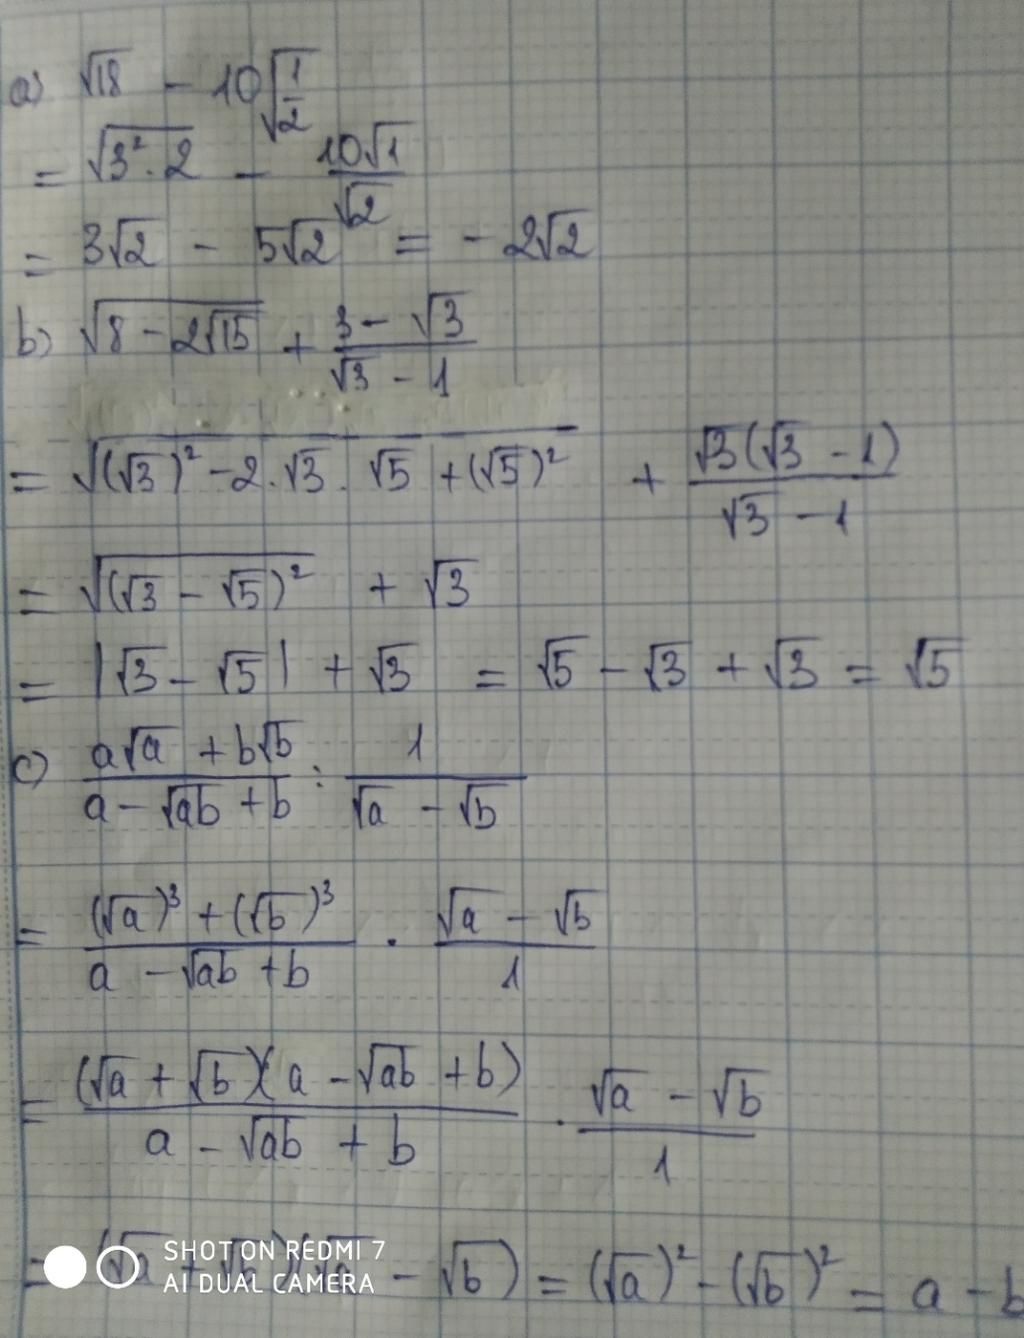 a) √18 - 10√(1/2)
= √(3².2) - 10√1/√2
= 3√2 - 5√2 = - 2√2
b) √(8 - 2√15) + (3 - √3)/(√3 - 1)
= √((√3)² - 2.√3.√5 + (√5)²) + √3(√3 - 1)/(√3 - 1)
= √((√3 - √5)²) + √3
= |√3 - √5| + √3 = √5 - √3 + √3 = √5
c) (a√a + b√b)/(a - √ab + b) : 1/(√a - √b)
= ((√a)³ + (√b)³)/(a - √ab + b) . (√a - √b)/1
= (√a + √b)(a - √ab + b)/(a - √ab + b) . (√a - √b)/1
= (√a + √b)(√a - √b) = (√a)² - (√b)² = a - b
SHOT ON REDMI 7
AI DUAL CAMERA